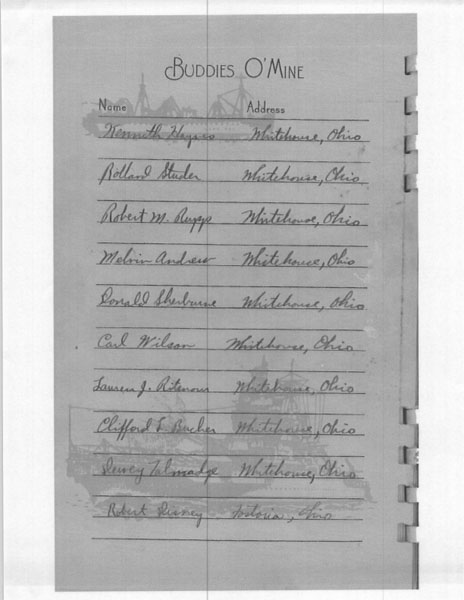 BUDDIES O'MINE
Name Address
Kenneth Hayes Whitehouse, Ohio
Rolland Studer Whitehouse, Ohio
Robert M. Rupp Whitehouse, Ohio
Melvin Andrew Whitehouse, Ohio
Donald Sherburne Whitehouse, Ohio
Carl Wilson Whitehouse, Ohio
Lauren J. Ritenour Whitehouse, Ohio
Clifford L Bucher Whitehouse, Ohio
Dewey Talmadge Whitehouse, Ohio
Robert Fostoria, Ohio